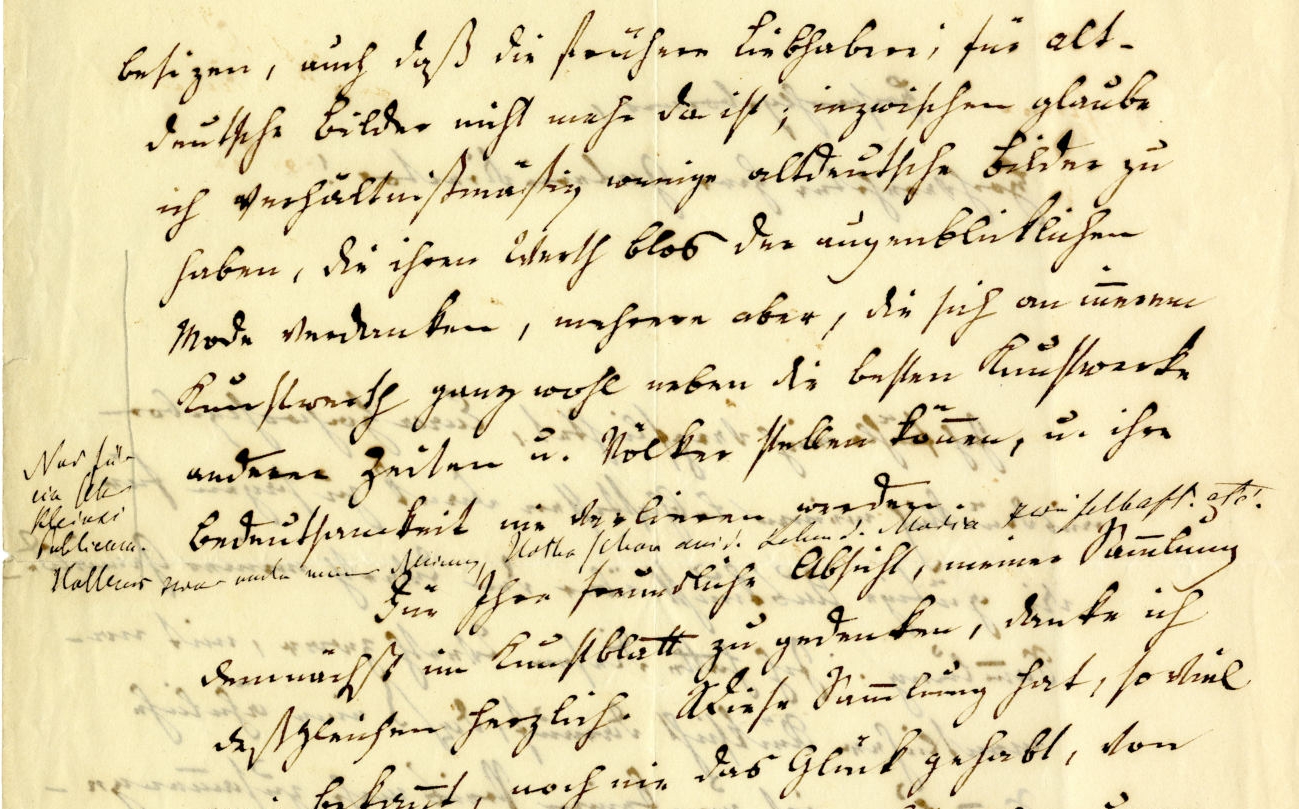 besizen, auch daß die frühere Liebhaberei, für alt-
deutsche Bilder nicht mehr da ist; inzwischen glaube
ich verhältnißmäßig wenige altdeutsche Bilder zu
haben, die ihren Werth blos der augenblicklichen
Mode verdanken, mehrere aber, die sich an innerem
Kunstwerth ganz wohl neben die besten Kunstwerke
anderer Zeiten u. Völker stellen können, u. ihre
Bedeutsamkeit nie verlieren werden.
Nur für
ein sehr
kleines
Publicum.
Für Ihre freundliche Absicht, meiner Sammlung
demnächst im Kunstblatt zu gedenken, danke ich
deßgleichen herzlich. Diese Sammlung hat, so viel
bekannt, noch nie das Glück gehabt, von